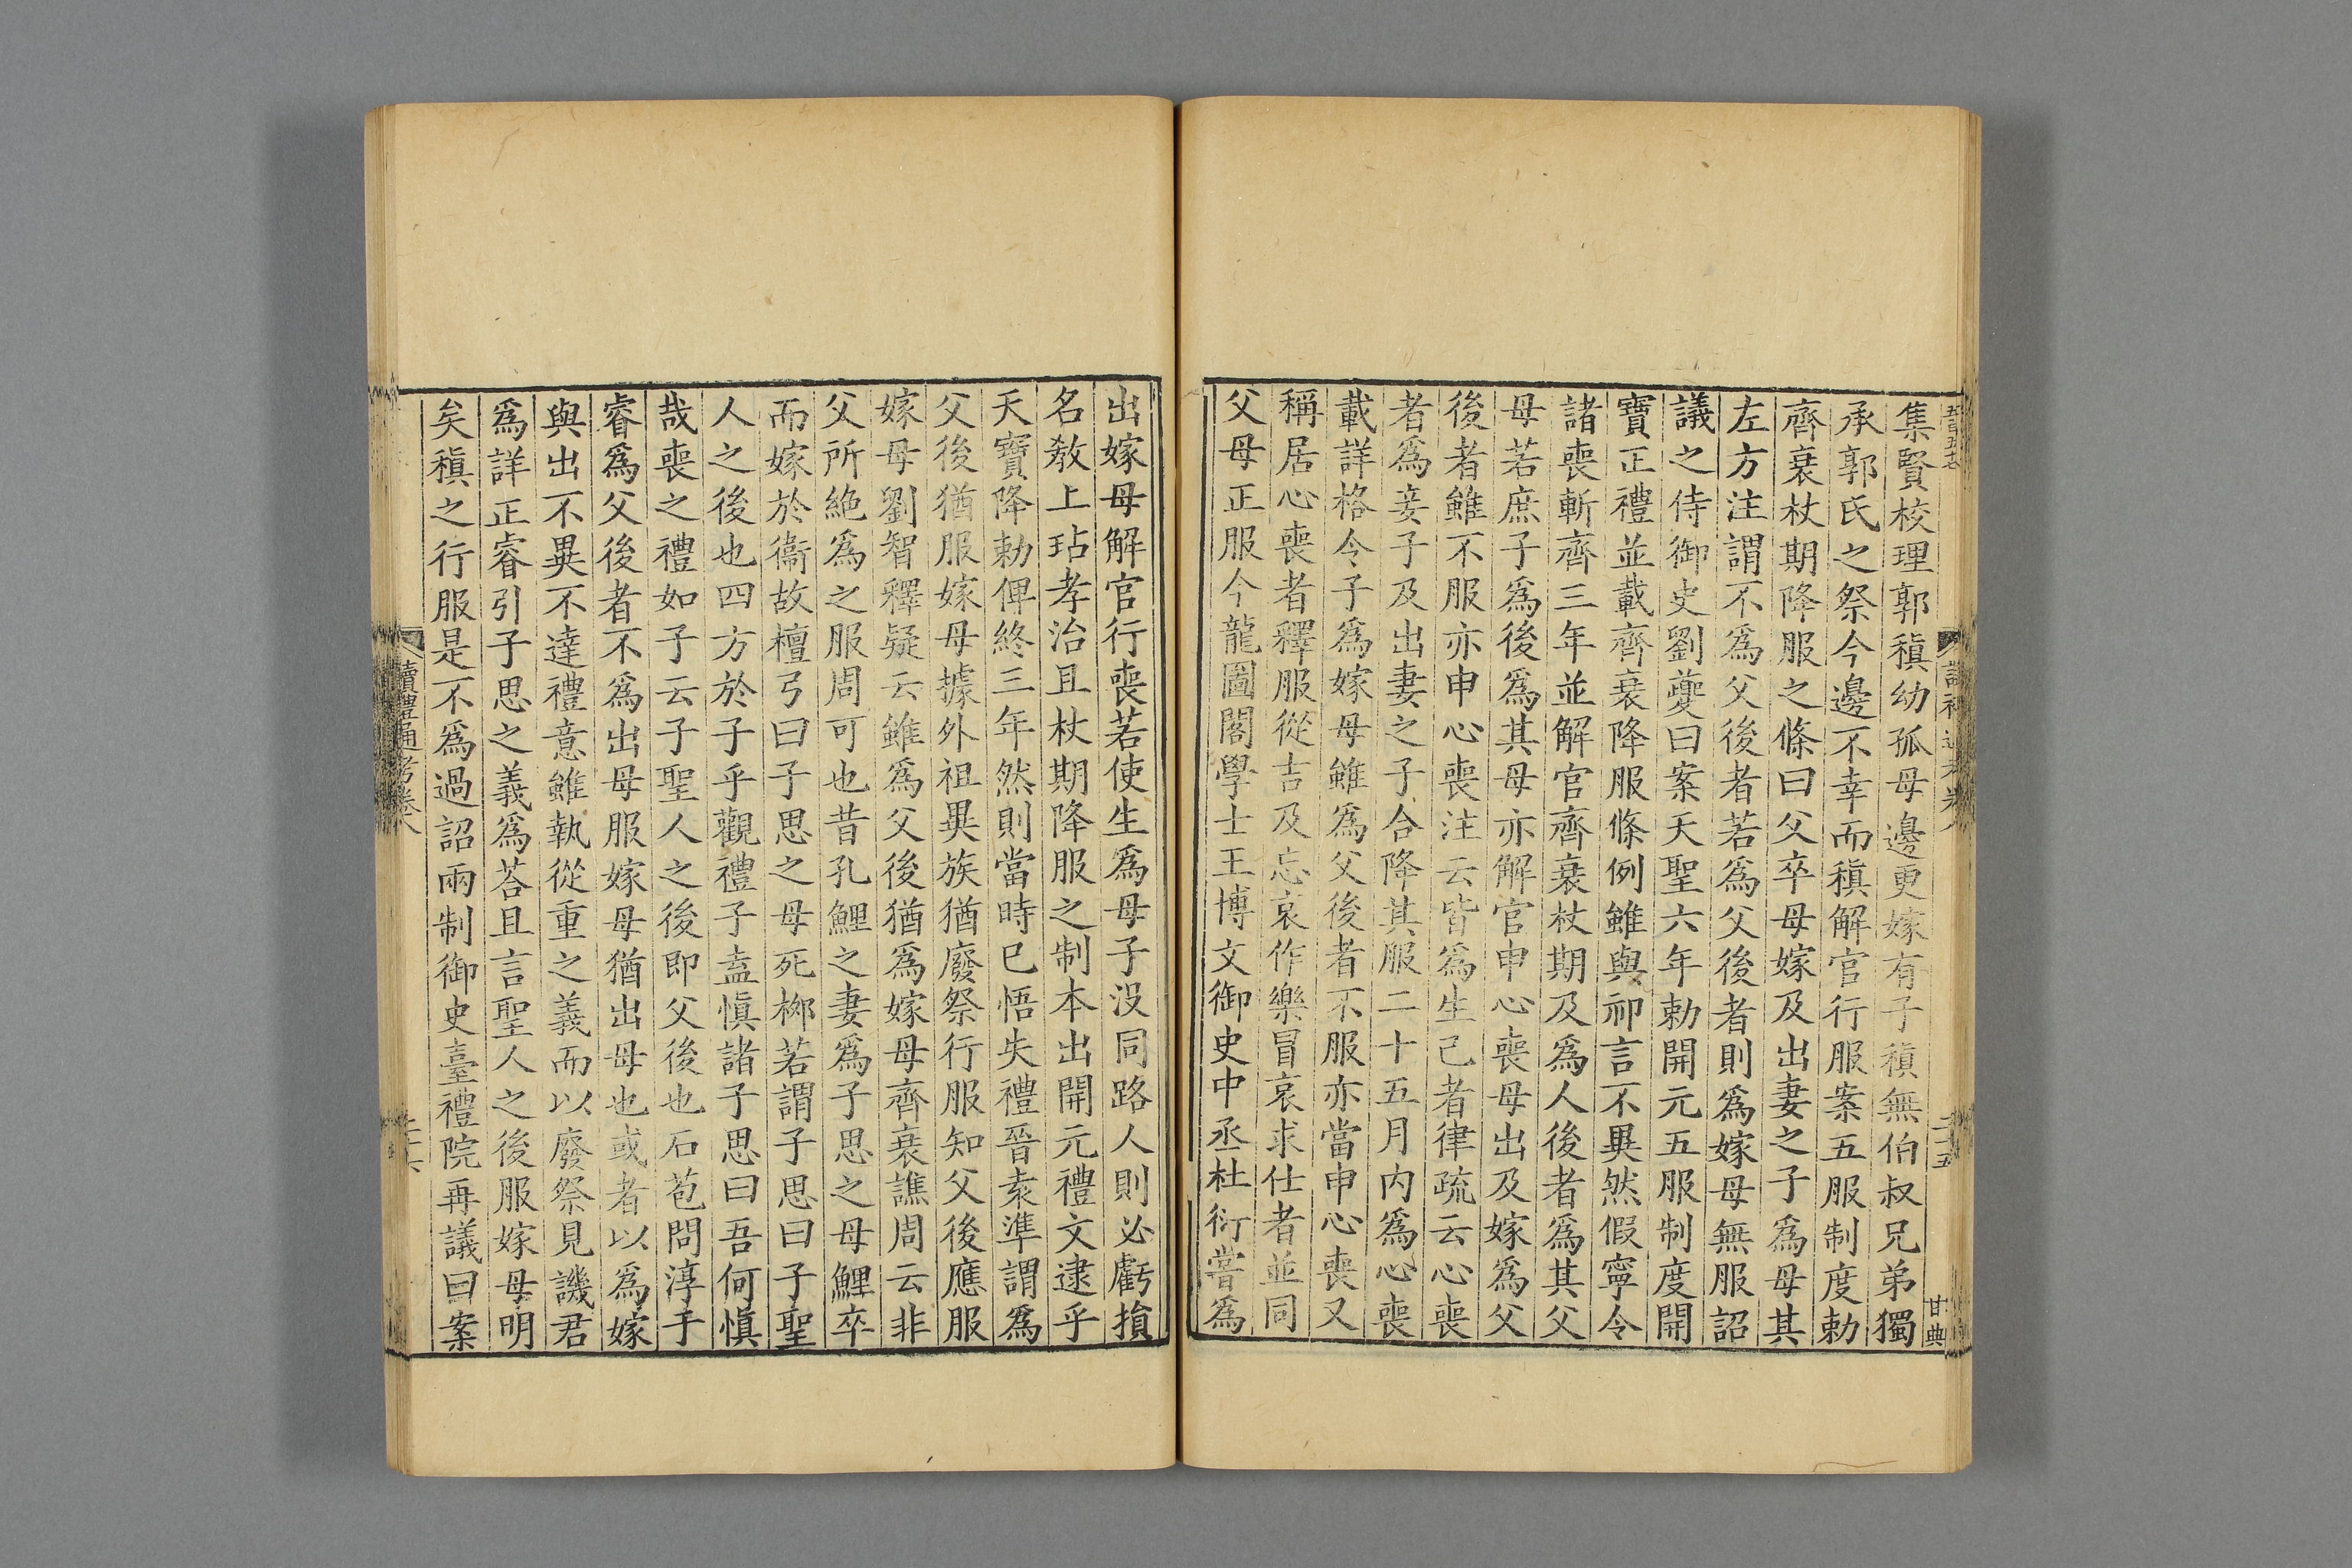 集賢校理郭稹幼孤母邊更嫁有子稹無伯叔兄弟獨
承郭氏之祭今邊不幸而稹解官行服案五服制度勅
齊衰杖期降服之條曰父卒母嫁及出妻之子爲母其
左方注謂不爲父後者若爲父後者則爲嫁母無服詔
議之侍御史劉夔曰案天聖六年勅開元五服制度開
寶正禮並載齊衰降服條例雖與祁言不異然假寧令
諸喪斬齊三年並解官齊衰杖期及爲人後者爲其父
母若庶子爲後爲其母亦解官申心喪母出及嫁爲父
後者雖不服亦申心喪注云皆爲生己者律疏云心喪
者爲妾子及出妻之子合降其服二十五月内爲心喪
載詳格令子爲嫁母雖爲父後者不服亦當申心喪又
稱居心喪者釋服從吉及忘哀作樂冒哀求仕者並同
父母正服今龍圖閣學士王博文御史中丞杜衍嘗爲
出嫁母解官行喪若使生爲母子没同路人則必虧損
名敎上玷孝治且杖期降服之制本出開元禮文逮乎
天寶降勅俾終三年然則當時已悟失禮晉袁準謂爲
父後猶服嫁母據外祖異族猶廢祭行服知父後應服
嫁母劉智釋疑云雖爲父後猶爲嫁母齊衰譙周云非
父所絶爲之服周可也昔孔鯉之妻爲子思之母鯉卒
而嫁於衞故檀弓曰子思之母死栁若謂子思曰子聖
人之後也四方於子乎觀禮子盍愼諸子思曰吾何愼
哉喪之禮如子云子聖人之後即父後也石苞問淳于
睿爲父後者不爲出母服嫁母猶出母也或者以爲嫁
與出不異不達禮意雖執從重之義而以廢祭見譏君
爲詳正睿引子思之義爲荅且言聖人之後服嫁母明
矣稹之行服是不爲過詔兩制御史臺禮院再議曰案
讀禮通考卷八
甘典